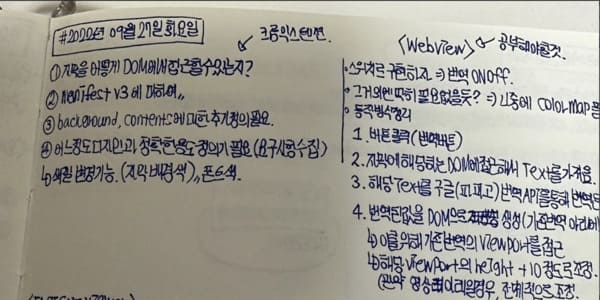 #2022년 09월 27일 화요일
크롬익스텐션.
① 자막을 어떻게 DOM에서 접근할수있는지?
② Menifest v3 에 대하여,,
③ background, contents에 대한 추가정의필요.
④ 어느정도 디자인과 정확한 용도 정의가 필요 (요구사항수집)
↳ 색깔 변경가능. (자막 배경색),, 폰트색.
<WebView> 공부해야할것.
• 스위치로 구현하자 ⇒ 번역 ON OFF.
• 그거외엔 딱히 필요없을듯? ⇒ 나중에 Color Map
• 동작방식정리
1. 버튼클릭 (번역버튼)
2. 자막에 해당하는 DOM에 접근해서 Text를 가져옴.
3. 해당 Text를 구글(파파고) 번역 API를 통해 번역
4. 번역된값을 DOM으로 생성 (기존번역 아래에
↳ 이를 위해 기존번역의 Viewport를 접근
↳ 해당 Viewport의 height + 10 정도로 조정.
(만약 영상 일경우, 전체적으로 조정.